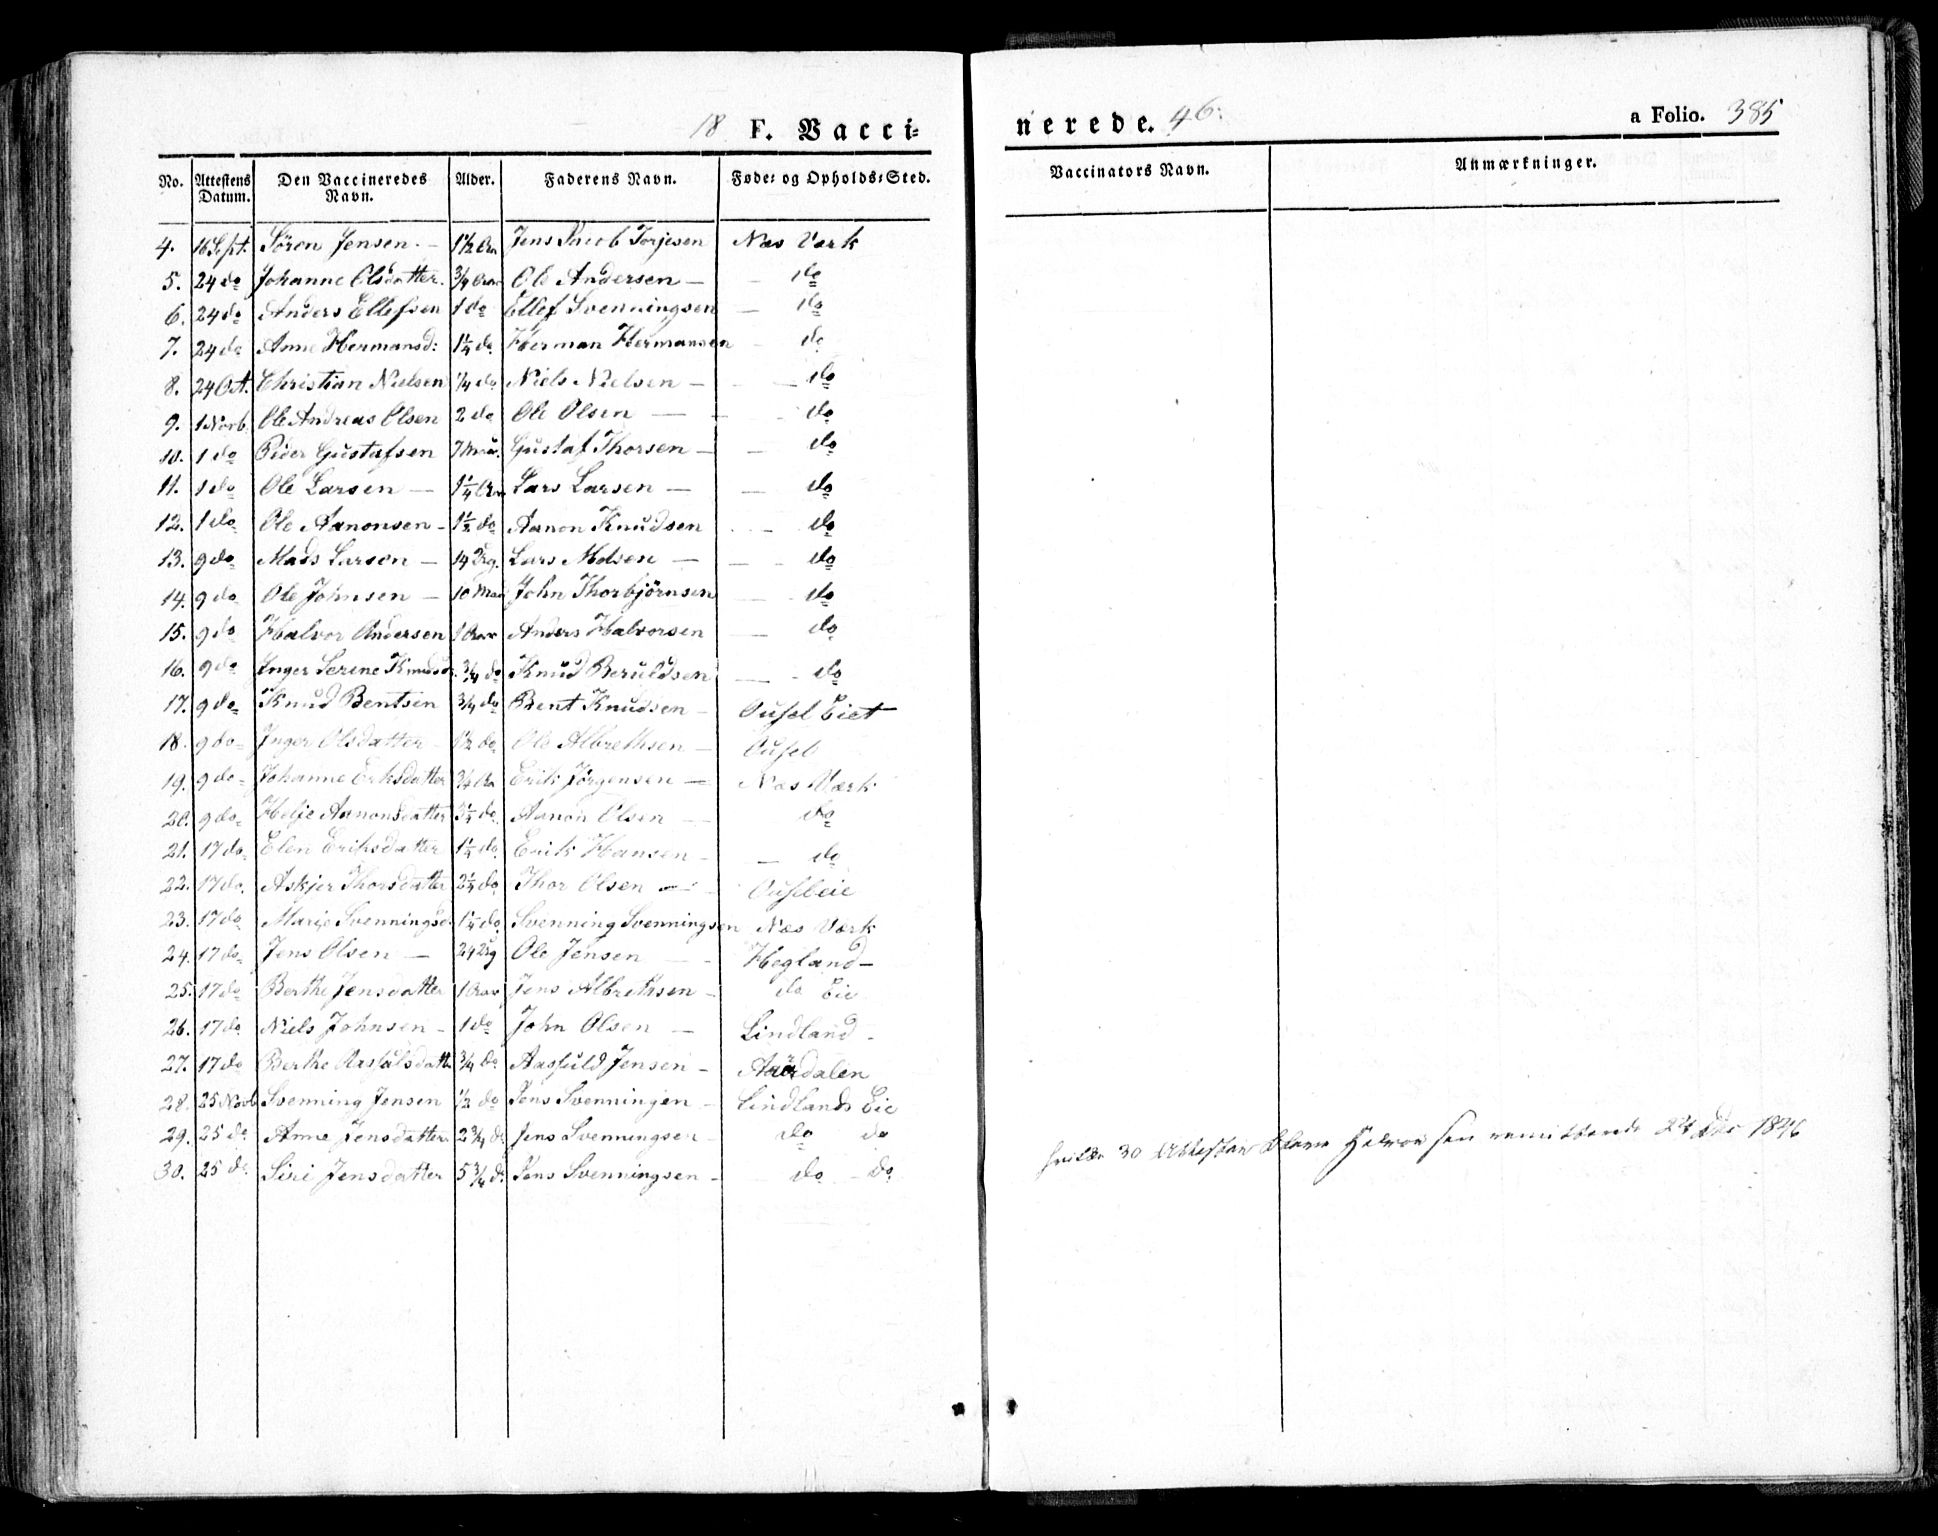 18 F. Vacci=
nerede. 46.
a Folio. 385
No. Attestens Datum. Den Vaccineredes Navn. Alder. Faderens Navn. Føde= og Opholds=Sted. Vaccinators Navn. Anmærkninger.
4. 16 Sept. Sören Jensen. – 1½ Aar Jens Jacob Torjesen Næs Værk
5. 24 do Johanne Olsdatter. ¾ Aar Ole Andersen – – do
6. 24 do Anders Ellefsen 1 do Ellef Svenningsen – do
7. 24 do Anne Hermansd: 1¼ do Herman Hermansen – do
8. 24 Oct. Christian Nielsen ¼ do Niels Nielsen – – do
9. 1 Novb. Ole Andreas Olsen 2 do Ole Olsen – – do
10. 1 do Peder Gustafsen 7 Maa. Gustaf Thorsen – – do
11. 1 do Ole Larsen – 1¼ Aar Lars Larsen – – do
12. 1 do Ole Aanonsen – 1½ do Aanon Knudsen – do
13. 9 do Mads Larsen – 14 Lars Madsen – – do
14. 9 do Ole Johnsen – 10 Maa John Thorbjörnsen – do
15. 9 do Halvor Andersen 1 Aar Anders Halvorsen – do
16. 9 do Inger Serine Knudsd. ¾ do Knud Beruldsen – do
17. 9 do Knud Bentsen ¾ do Bent Knudsen – Ousel Eiet
18. 9 do Inger Olsdatter – 1½ do Ole Albrethsen – Ousel
19. 9 do Johanne Eriksdatter ¾ Aar Erik Jörgensen – Næs Værk
20. 9 do Helje Aanonsdatter 3¼ do Aanon Olsen – do
21. 17 do Elen Eriksdatter 1¼ do Erik Hansen – – do
22. 17 do Askjer Thorsdatter 2¼ do Thor Olsen – Ouseleie
23. 17 do Marie Svenningsd. 1¼ do Svenning Svenningsen Næs Værk
24. 17 do Jens Olsen – 24 Ole Jensen – Hegland –
25. 17 do Berthe Jensdatter 1 Aar Jens Albrethsen – do Eie
26. 17 do Niels Johnsen – 1 do John Olsen – Lindland –
27. 17 do Berthe Aasulsdatt ¾ do Aasuld Jensen – dalen
28. 25 Novb Svenning Jensen ½ do Jens Svenningen – Lindlands Eie
29. 25 do Anne Jensdatter 2¾ do Jens Svenningsen – do do
30. 25 do Siri Jensdatter 5¾ do Jens Svenningsen – do do
30 Attester 1846